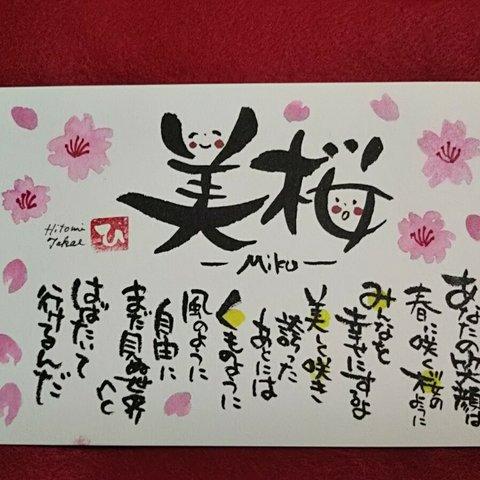 美桜
-Miku-
Hitomi
Takae
ひ
あなたの笑顔は
春に咲く桜の
ように
みんなを
幸せにするよ
美しく咲き
誇った
あとには
くものように
風のように
自由に
まだ見ぬ世界
へと
はばたいて
行けるんだ